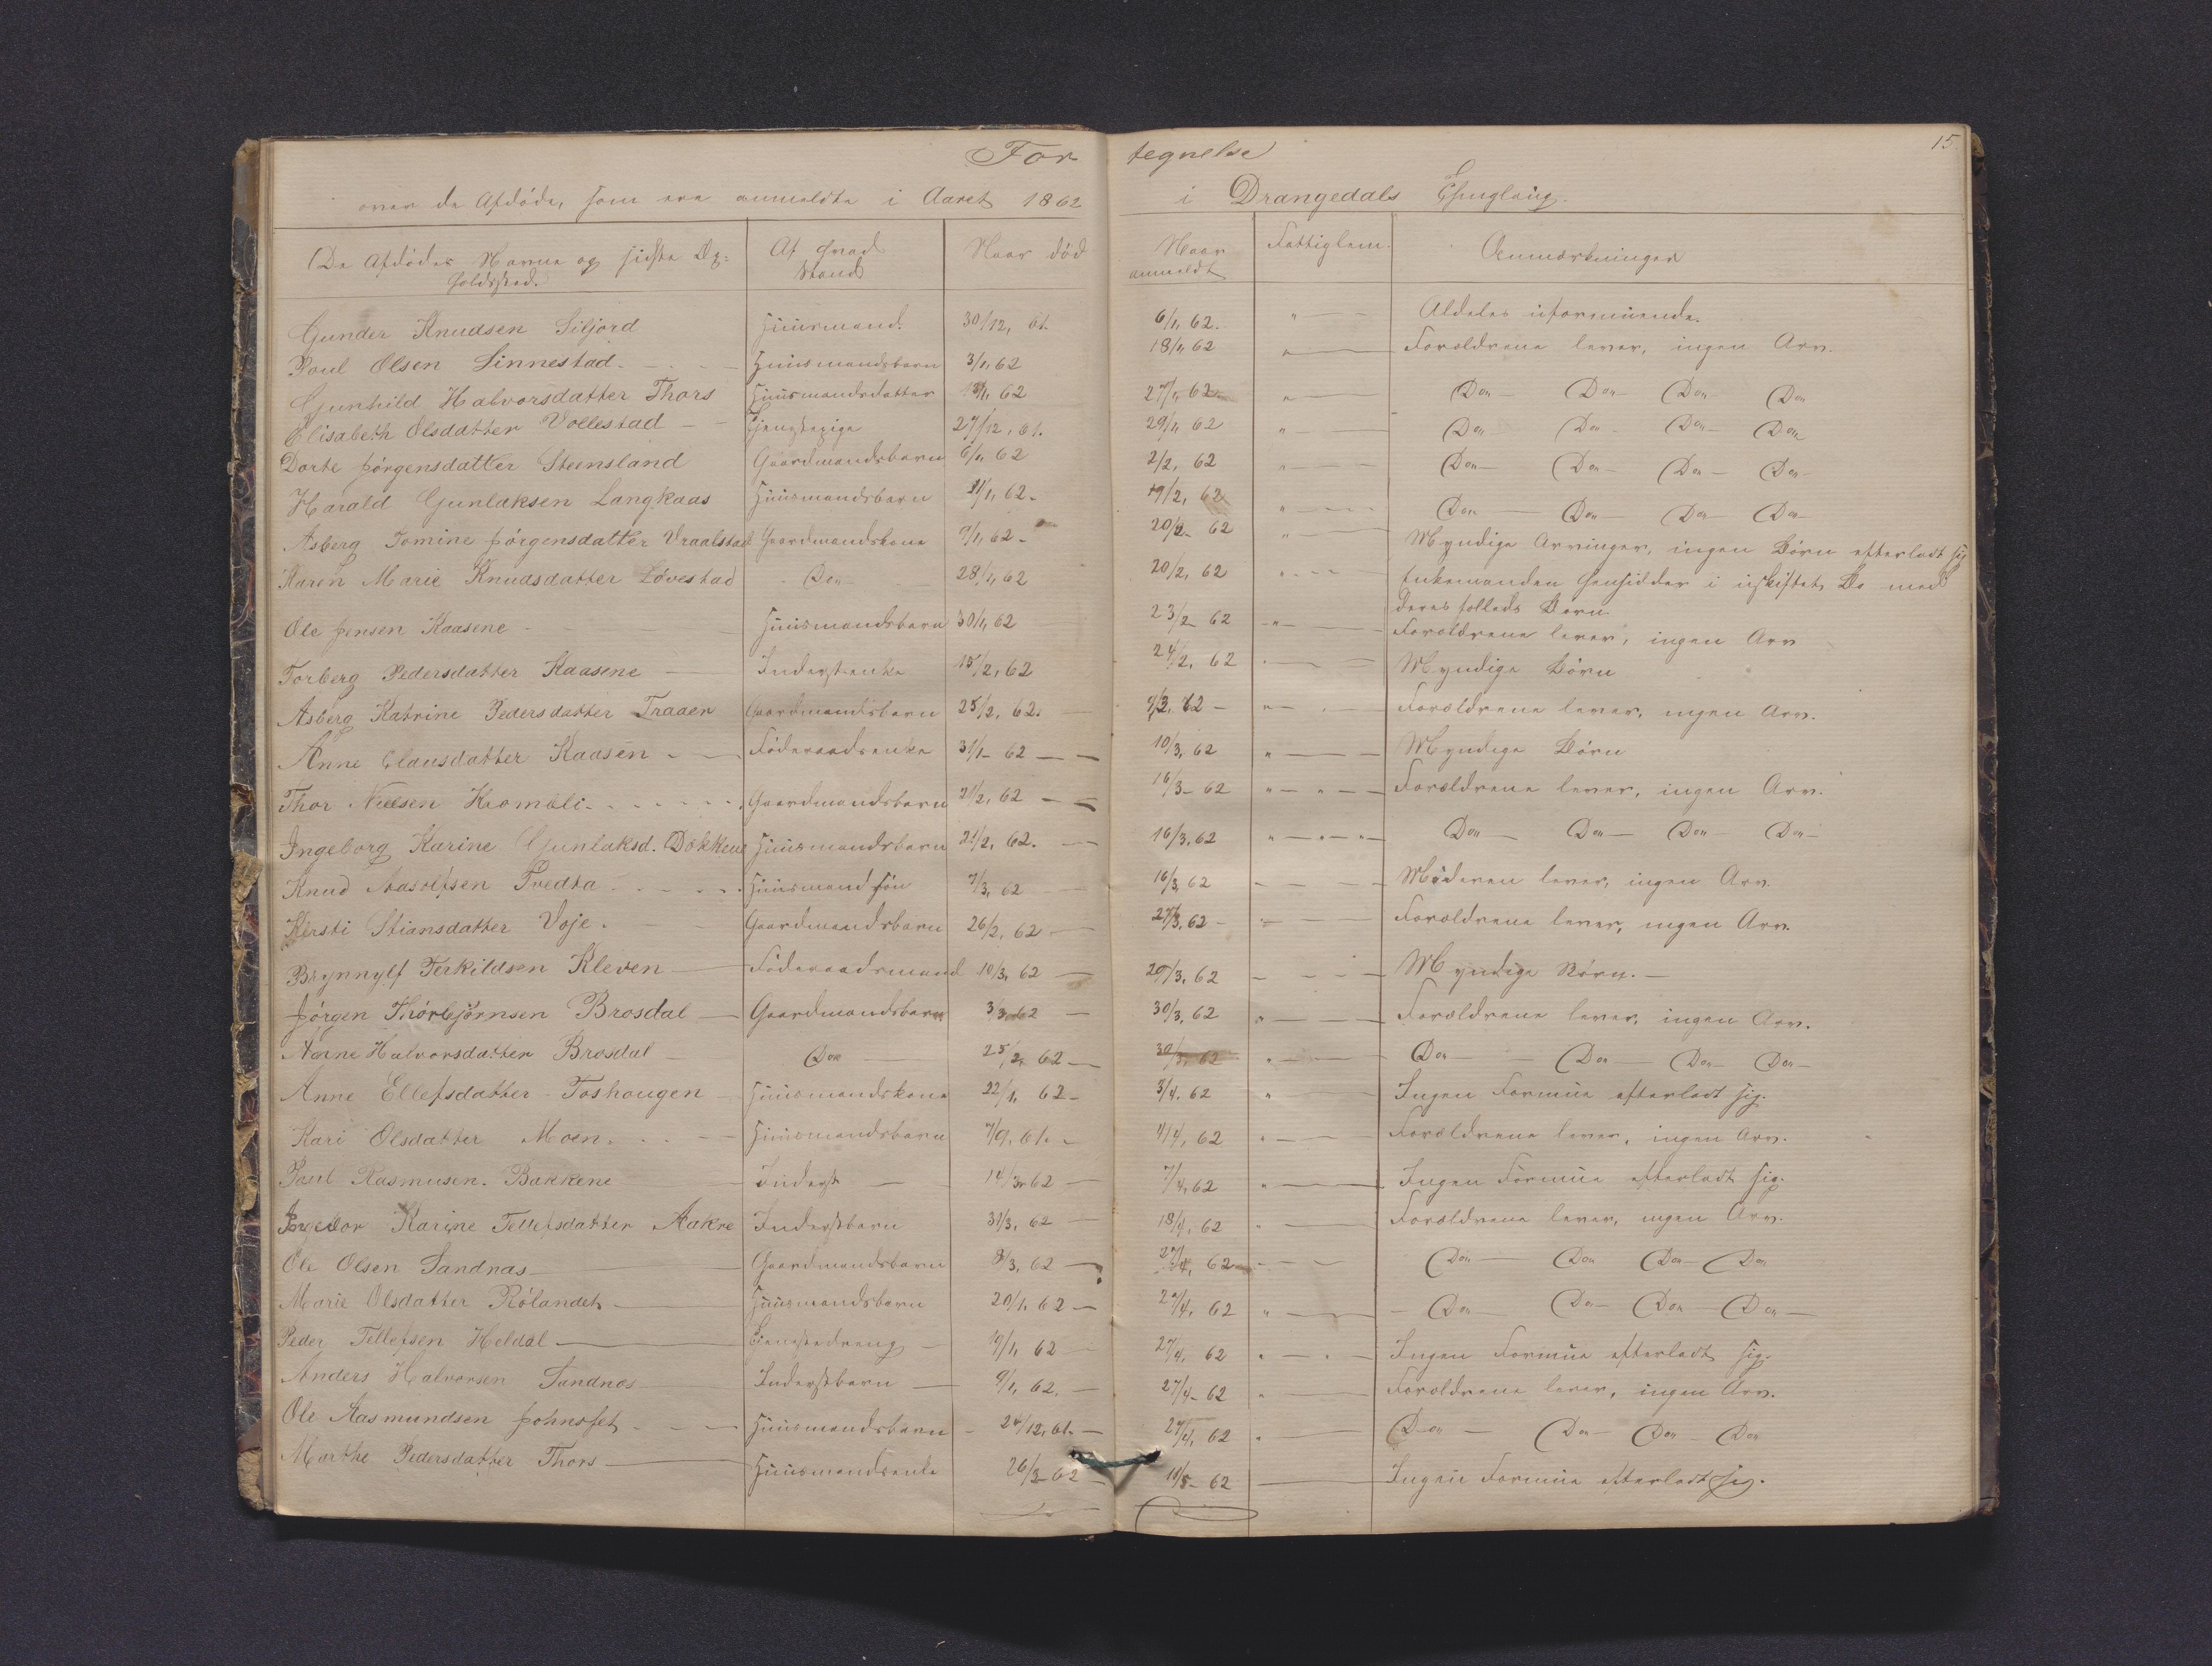 15
Fortegnelse
over de Afdøde, som ere anmeldte i Aaret 1862 i Drangedals Thinglaug.
De Afdødes Navne og sidste Op- Af hvad Naar død Naar Fattiglem. Anmærkninger
holdssted. Stand anmeldt
Gunder Knudsen Siljord Huusmand. 30/12, 61. 6/1, 62. " — Aldeles uformuende.
Poul Olsen Sinnestad. Huusmandsbarn 3/1, 62 18/1, 62 " — Forældrene lever, ingen Arv.
Gunhild Halvorsdatter Thors Huusmandsdatter 62 27/1, 62 " — Do — Do — Do — Do
Elisabeth Olsdatter Vollestad — Tjenestepige 27/12, 61. 29/1, 62 " — Do — Do — Do — Do
Dorte Jørgensdatter Steensland Gaardmandsbarn 6/1, 62 2/2, 62 " — Do — Do — Do — Do —
Harald Gunlaksen Langkaas Huusmandsbarn 62. 19/2, 62 " — Do — Do — Do — Do —
Asberg Tomine Jørgensdatter Vraalstad Gaardmandskone 9/1, 62. 20/2 62 " — Myndige Arvinger, ingen Børn efterladt sig
Karen Marie Knudsdatter Løvestad Do — 28/1, 62 20/2, 62 " — Enkemanden hensidder i uskiftet Bo med
deres fælleds Børn.
Ole Jensen Kaasene Huusmandsbarn 30/1, 62 23/2 62 " — Forældrene lever, ingen Arv
Torberg Pedersdatter Kaasene — Inderstenke 15/2, 62 24/2, 62 — Myndige Børn
Asberg Katrine Pedersdatter Traaen Gaardmandsbarn 25/2, 62. 9/3, 62 — " — Forældrene lever, ingen Arv.
Anne Clausdatter Kaasen — Føderaadsenke 31/1 62 — 10/3, 62 " — Myndige Børn
Thor Nielsen Krombli Gaardmandsbarn 2/2, 62 — 16/3 62 " — " — Forældrene lever, ingen Arv.
Ingeborg Karine Gunlaksd. Dokkene Huusmandsbarn 21/2, 62. — 16/3, 62 " — Do — Do — Do — Do —
Knud Aasolfsen Tvedta Huusmand søn 7/3, 62 — 16/3, 62 — Moderen lever, ingen Arv.
Kirsti Stiansdatter Voje. Gaardmandsbarn 26/2, 62 — 27/3, 62 — Forældrene lever, ingen Arv.
Brynnylf Terkildsen Kleven — Føderaadsmand 10/3, 62 — 29/3, 62 — Myndige Børn. —
Jørgen Thorbjørnsen Brosdal — Gaardmandsbarn 3/3, 62 — 30/3, 62 " — Forældrene lever, ingen Arv.
Anne Halvorsdatter Brosdal — Do — 25/2, 62 — 30/3, 62 " — Do — Do — Do — Do —
Anne Ellefsdatter Toshougen Huusmandskone 22/1, 62 — 3/4, 62 " — Ingen Formue efterladt sig.
Kari Olsdatter Moen. Huusmandsbarn 7/9, 61. — 4/4, 62 " — Forældrene lever, ingen Arv.
Poul Rasmusen. Bakkene Inderst — 14/3, 62 — 7/4, 62 " — Ingen Formue efterladt sig.
Karine Tellefsdatter Aakre Inderstbarn 31/3, 62 — 18/4, 62 " — Forældrene lever, ingen Arv.
Ole Olsen Sandnas — Gaardmandsbarn 8/3, 62 — 27/4, 62 — Do — Do — Do — Do
Marie Olsdatter Rølandet — Huusmandsbarn 20/1, 62 — 27/4, 62 " — Do — Do — Do — Do —
Peder Tellefsen Heldal — Tjenestedreng — 19/1, 62 — 27/4, 62 " — Ingen Formue efterladt sig.
Anders Halvorsen Sandnas — Inderstbarn — 9/1, 62. — 27/4 62 " — Forældrene lever, ingen Arv.
Ole Aasmundsen Johnsfet — Huusmandsbarn — 24/12, 61. — 27/4, 62 " — Do — Do — Do — Do
Marthe Pedersdatter Thors — Huusmandsenke 26/3 62 11/5 62 — Ingen Formue efterladt sig.